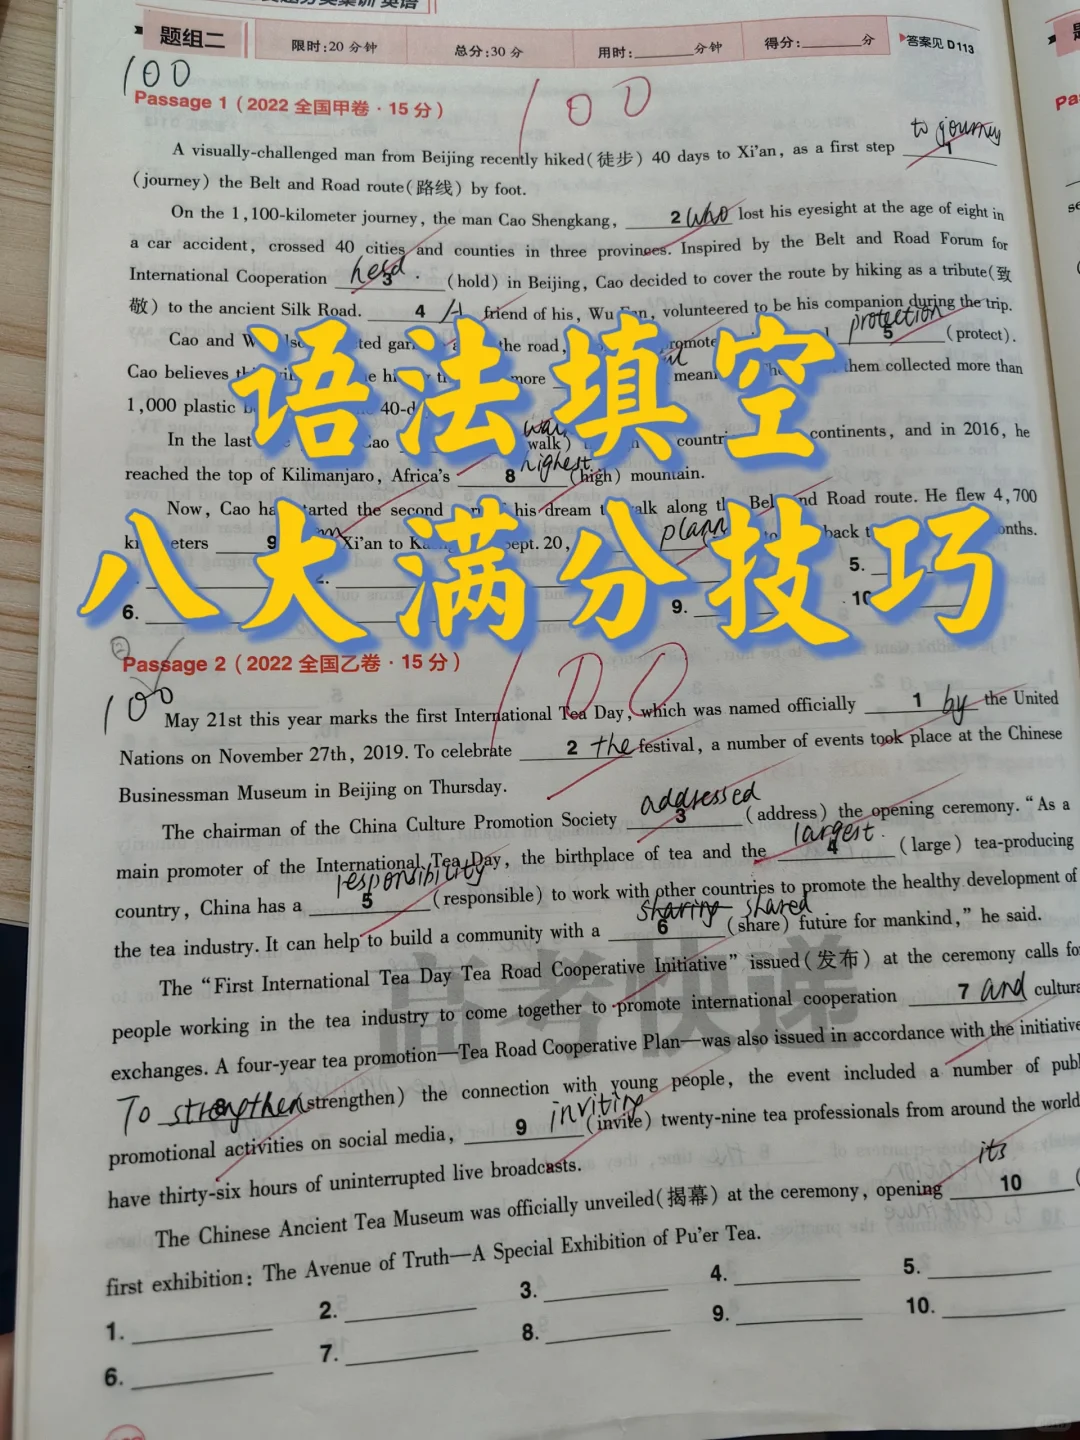 题组二
限时:20 分钟
总分:30 分
用时:______分钟
得分:______分
答案见 D113
100
100
Passage 1 (2022 全国甲卷·15 分)
to journey
A visually-challenged man from Beijing recently hiked(徒步) 40 days to Xi'an, as a first step 1
(journey) the Belt and Road route(路线) by foot.
On the 1,100-kilometer journey, the man Cao Shengkang, 2 who lost his eyesight at the age of eight in
a car accident, crossed 40 cities and counties in three provinces. Inspired by the Belt and Road Forum for
International Cooperation held 3 (hold) in Beijing, Cao decided to cover the route by hiking as a tribute(致
敬) to the ancient Silk Road. 4 A friend of his, Wu volunteered to be his companion during the trip.
protection
Cao and the road, 5 (protect).
Cao believes more them collected more than
1,000 plastic 40-d
In the last Cao walk) continents, and in 2016, he
highest
reached the top of Kilimanjaro, Africa's 8 (high) mountain.
Now, Cao started the second his dream along Road route. He flew 4,700
9 Xi'an to Sept. 20, back
5.
6. 9. 10
语法填空
八大满分技巧
Passage 2 (2022 全国乙卷·15 分)
100
100
May 21st this year marks the first International Tea Day, which was named officially 1 by the United
Nations on November 27th, 2019. To celebrate 2 the festival, a number of events took place at the Chinese
Businessman Museum in Beijing on Thursday.
addressed
The chairman of the China Culture Promotion Society 3 (address) the opening ceremony. "As a
largest
main promoter of the International Tea Day, the birthplace of tea and the 4 (large) tea-producing
responsibility
country, China has a 5 (responsible) to work with other countries to promote the healthy development of
sharing shared
the tea industry. It can help to build a community with a 6 (share) future for mankind," he said.
The "First International Tea Day Tea Road Cooperative Initiative" issued(发布) at the ceremony calls for
people working in the tea industry to come together to promote international cooperation 7 and cultura
exchanges. A four-year tea promotion—Tea Road Cooperative Plan—was also issued in accordance with the initiative
To strengthen 8 (strengthen) the connection with young people, the event included a number of publ
inviting
promotional activities on social media, 9 (invite) twenty-nine tea professionals from around the world
have thirty-six hours of uninterrupted live broadcasts.
its
The Chinese Ancient Tea Museum was officially unveiled(揭幕) at the ceremony, opening 10 (
first exhibition: The Avenue of Truth—A Special Exhibition of Pu'er Tea.
1. 2. 3. 4. 5.
6. 7. 8. 9. 10.
高考快递